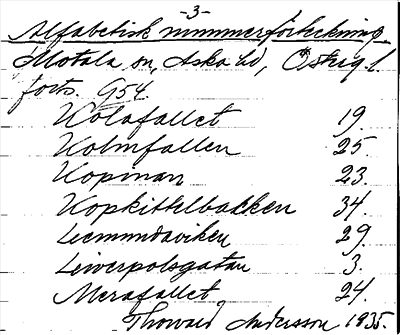 -3-
Alfabetisk nummerförteckning
Motala sn, Aska hd, Östergl.
forts. G54.
Kolafallet 19.
Kolmfallen 25.
Kopinan 23.
Kopkittelbacken 34.
Lemundaviken 29.
Liverpolsgatan 3.
Merafallet 24.
Thorvald Andersson 1935.